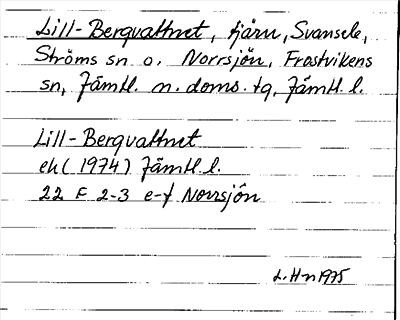 Lill-Bergvattnet, tjärn, Svansele,
Ströms sn o. Norrsjön, Frostvikens
sn, Jämtl. n. doms. tg, Jämtl. l.
Lill-Bergvattnet
ek (1974) Jämtl. l.
22 F 2-3 e-f Norrsjön
L. Hn 1975